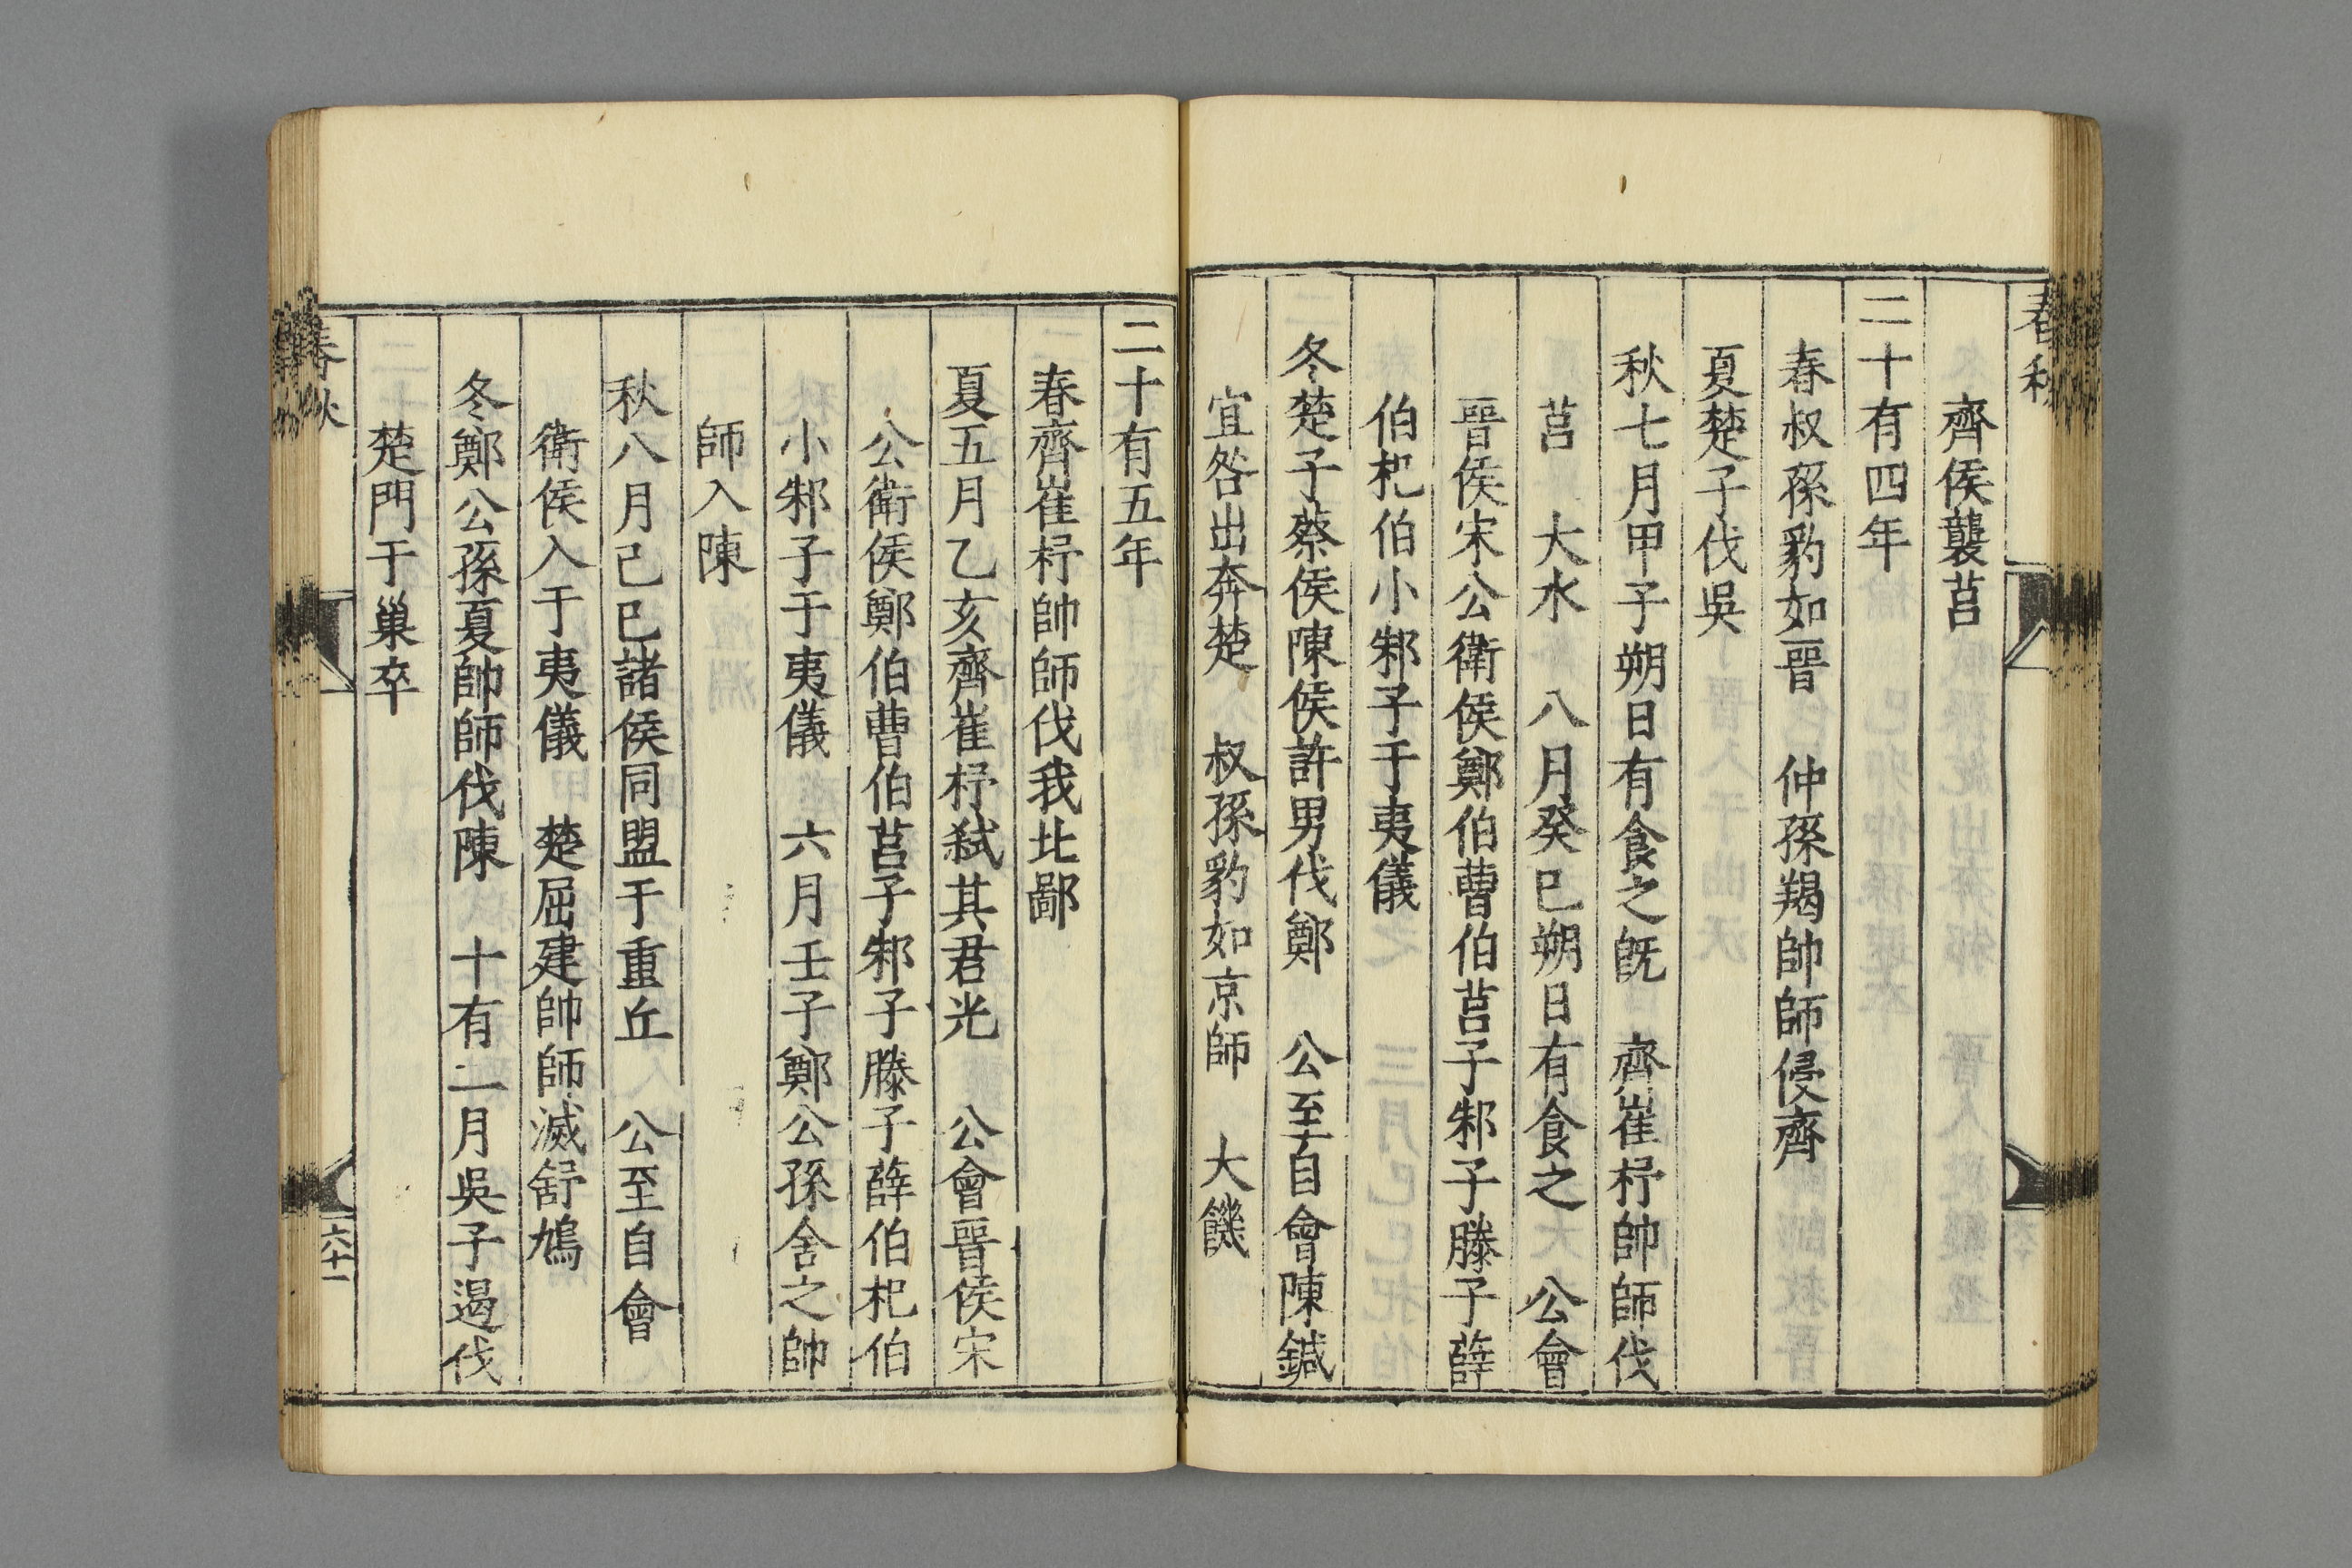 春秋
齊侯襲莒
二十有四年
春叔孫豹如晉　仲孫羯帥師侵齊
夏楚子伐吳
秋七月甲子朔日有食之旣　齊崔杼帥師伐
莒　大水　八月癸巳朔日有食之　公會
晉侯宋公衛侯鄭伯曹伯莒子邾子滕子薛
伯杞伯小邾子于夷儀
冬楚子蔡侯陳侯許男伐鄭　公至自會陳鍼
宜咎出奔楚　叔孫豹如京師　大饑
二十有五年
春齊崔杼帥師伐我北鄙
夏五月乙亥齊崔杼弑其君光　公會晉侯宋
公衛侯鄭伯曹伯莒子邾子滕子薛伯杞伯
小邾子于夷儀　六月壬子鄭公孫舍之帥
師入陳
秋八月己巳諸侯同盟于重丘　公至自會
衛侯入于夷儀　楚屈建帥師滅舒鳩
冬鄭公孫夏帥師伐陳　十有二月吳子遏伐
楚門于巢卒
春秋
六十一